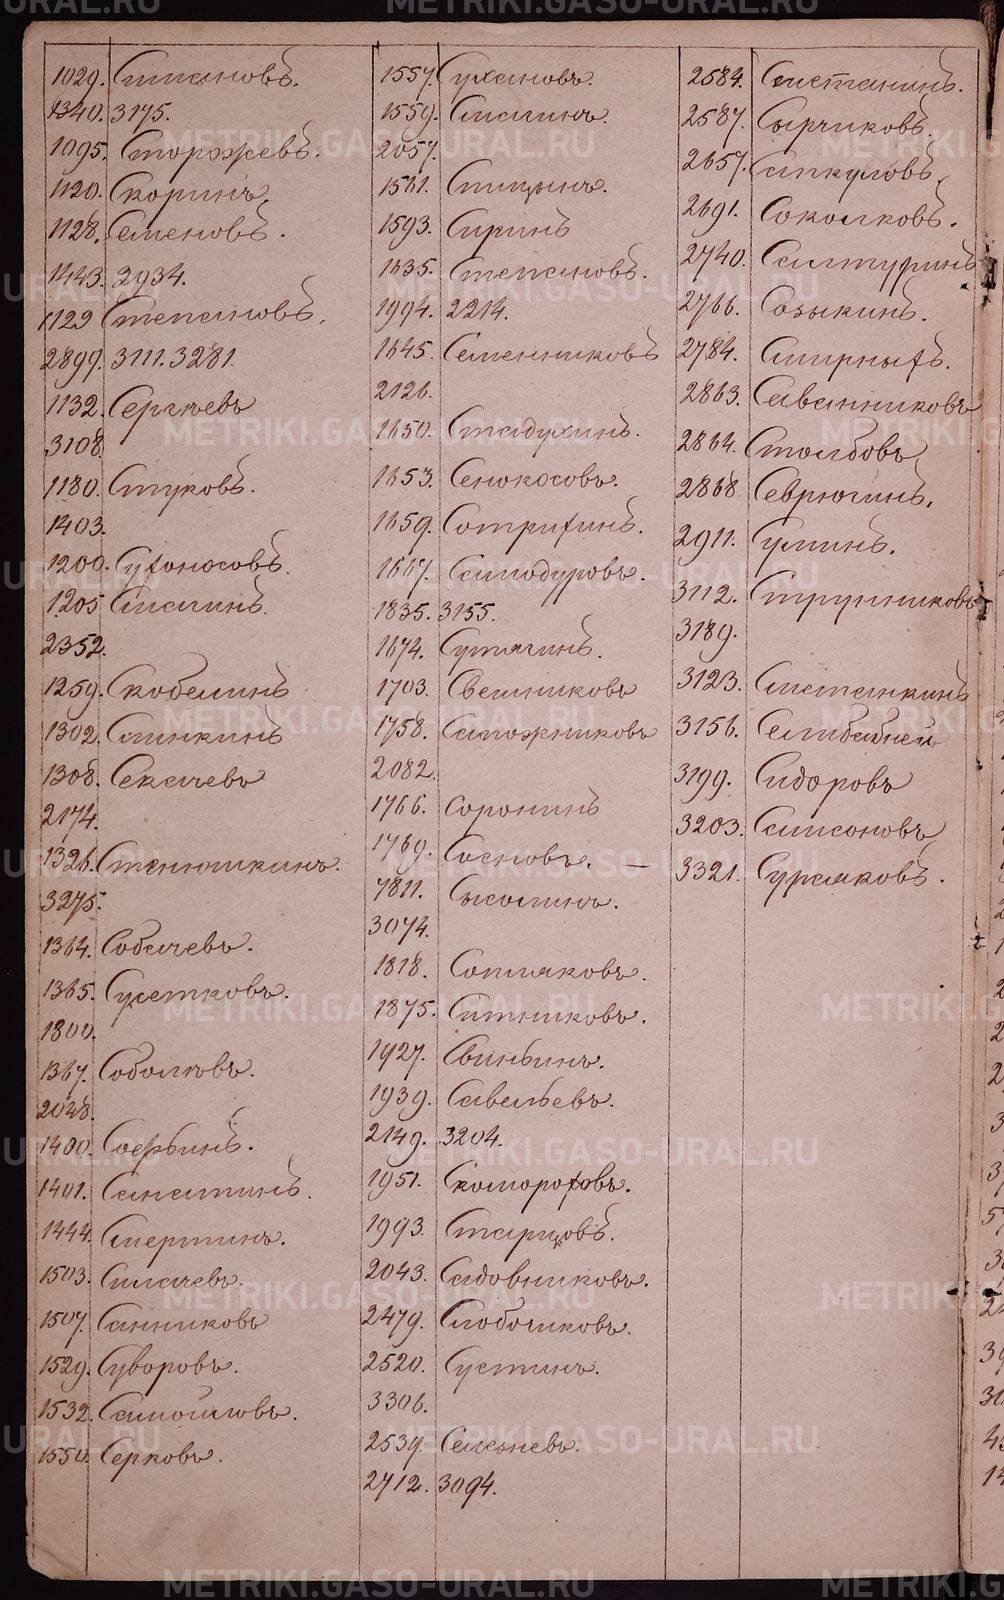 1029. Степановъ.
1340. 3175.
1095. Сторожевъ.
1120. Скоринъ.
1128. Семеновъ.
1443. 2934.
1129 Степановъ.
2899. 3111. 3281.
1132. Сергѣевъ
3108.
1180. Стуковъ.
1403.
1200. Сухоносовъ.
1205
2352.
1259. Скобелинъ
1302.
1308. Секачевъ
2174.
1326. Стенюшкинъ.
3275.
1364. Собачевъ.
1365.
1800.
1367. Соболювъ.
2048.
1400.
1401.
1444. Смертинъ.
1503. Силачевъ.
1507. Санниковъ
1529. Суворовъ.
1532. Самойловъ.
1550. Серковъ.
1557. Сухановъ.
1559.
2057.
1561. Спицынъ.
1593. Сиринъ
1635. Степановъ.
1994. 2214.
1645. Семенниковъ
2126.
1650. Стадухинъ.
1653. Сенокосовъ.
1659. Сотрихинъ.
1667. Самодуровъ.
1835. 3155.
1674. Сутягинъ.
1703. Свешниковъ
1758. Сапожниковъ
2082.
1766. Соронинъ
1769. Сосновъ. —
1811. Сысолинъ.
3074.
1818. Сопляковъ.
1875. Ситниковъ.
1927. Свиньинъ.
1939. Савельевъ.
2149. 3204.
1951. Скомороховъ.
1993. Старцовъ.
2043. Садовниковъ.
2479. Слободчиковъ.
2520. Сустинъ.
3306.
2539.
2712. 3094.
2584. Сметанинъ.
2587. Сырчиковъ.
2657. Сапкуловъ.
2691. Соколковъ.
2740. Салтуринъ
2766. Созыкинъ.
2784. Смирныхъ.
2863. Саванниковъ
2864. Столбовъ
2868 Севрюгинъ.
2911. Суминъ.
3112. Струнниковъ
3189.
3123. Сметанкинъ
3156.
3199. Сидоровъ
3203. Самсоновъ
3321. Сурмяковъ.
METRIKI.GASO-URAL.RU